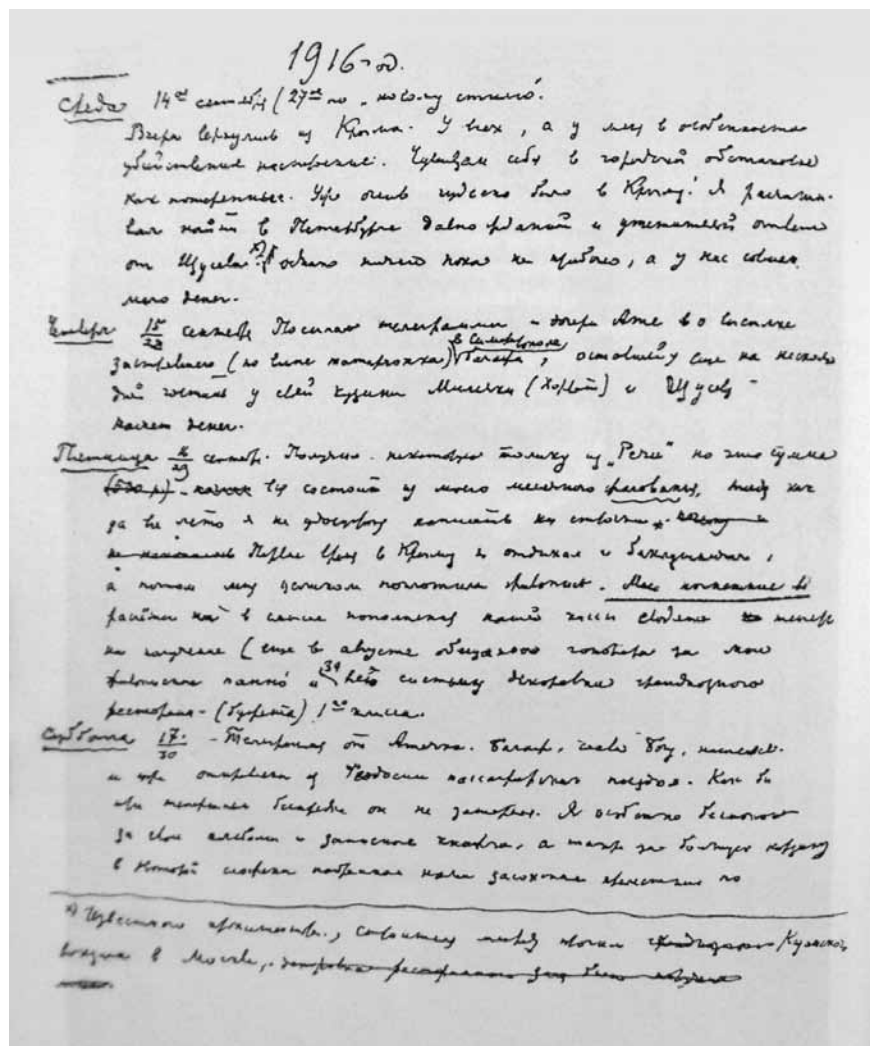 1916 год.
Среда 14го сентября (27го по новому стилю).
Вчера вернулись из Крыма. У всех, а у меня в особенности
убийственное настроение. Чувствуем себя в городской обстановке
как потерянные. Уж очень чудесно было в Крыму! Я рассчиты-
вал найти в Петербурге давно жданный и утешительный ответ
от Щусева x), однако ничего пока не прибыло, а у нас совсем
мало денег.
Четверг 15/28 сентября Посылаю телеграммы дочери Ате о высылке
застрявшего (по вине ) в Симферополе багажа, оставшейся еще на несколько
дней гостить у своей кузины Милечки (Хорват) и Щусеву
насчет денег.
Пятница 16/29 сентября. Получил некоторую толику из „Речи“ но эта сумма
(500 р.) вся состоит из моего месячного жалования, так как
за все лето я не удосужился написать ни строчки.
Первое время в Крыму я отдыхал и бакланил,
а потом меня целиком поглотила живопись. Мои
расчеты на в смысле пополнения нашей кассы сводятся теперь
на получение (еще в августе обещанного гонорара за мои
панно и за всю систему декоровки грандиозного
ресторана (буфета) 1го класса.
Суббота 17/30 - Телеграмма от Атечки. Багаж, слава Богу, нашелся
и уже отправлен из Феодосии пассажирским поездом. Как бы
при теперешнем беспорядке он не затерялся. Я особенно беспокоюсь
за свои альбомы и записные книжки, а также за большую корзину
в которой сложены набранные нами засохшие растения по
x) Известного архитектора, строителя между прочим Казанского
вокзала в Москве,